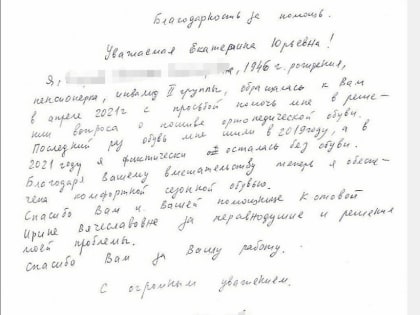 Благодарность за помощь.
Уважаемая Екатерина Юрьевна!
Я, 1946 г. рождения,
пенсионерка, инвалид II группы, обращалась к Вам
в апреле 2021г с просьбой помочь мне в реше-
нии вопроса о пошиве ортопедической обуви.
Последний раз обувь мне шили в 2019 году, а в
2021 году я фактически осталась без обуви.
Благодаря Вашему вмешательству теперь я обеспе-
чена комфортной сезонной обувью.
Спасибо Вам и Вашей помощнице Котовой
Ирине Вячеславовне за неравнодушие и решение
моей проблемы.
Спасибо Вам за Вашу работу.
С огромным уважением.